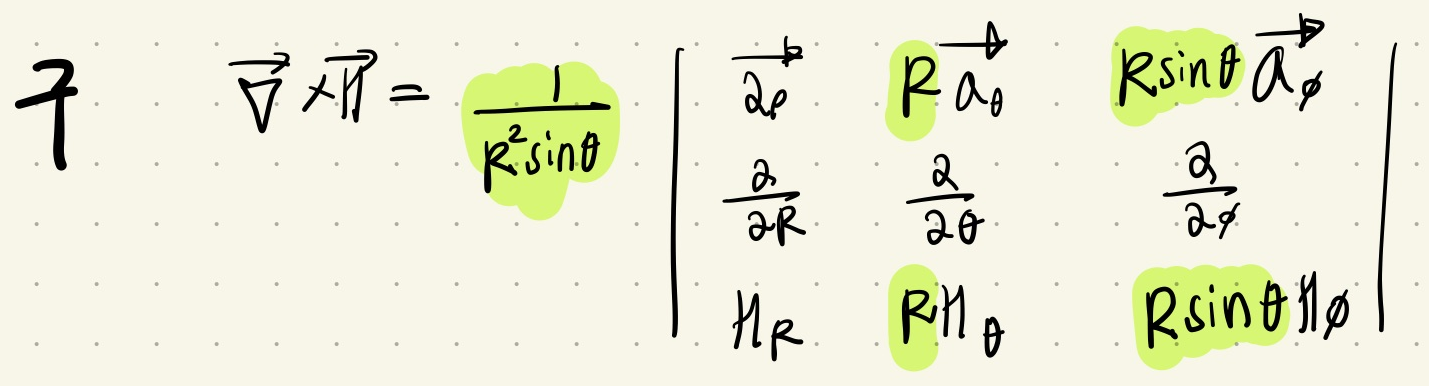 7 ∇⃗ × H⃗ = 1/(R² sinθ) | a⃗ᵨ  R a⃗_θ  R sinθ a⃗_ϕ |
| ∂/∂R  ∂/∂θ  ∂/∂ϕ |
| H_R  R H_θ  R sinθ H_ϕ |